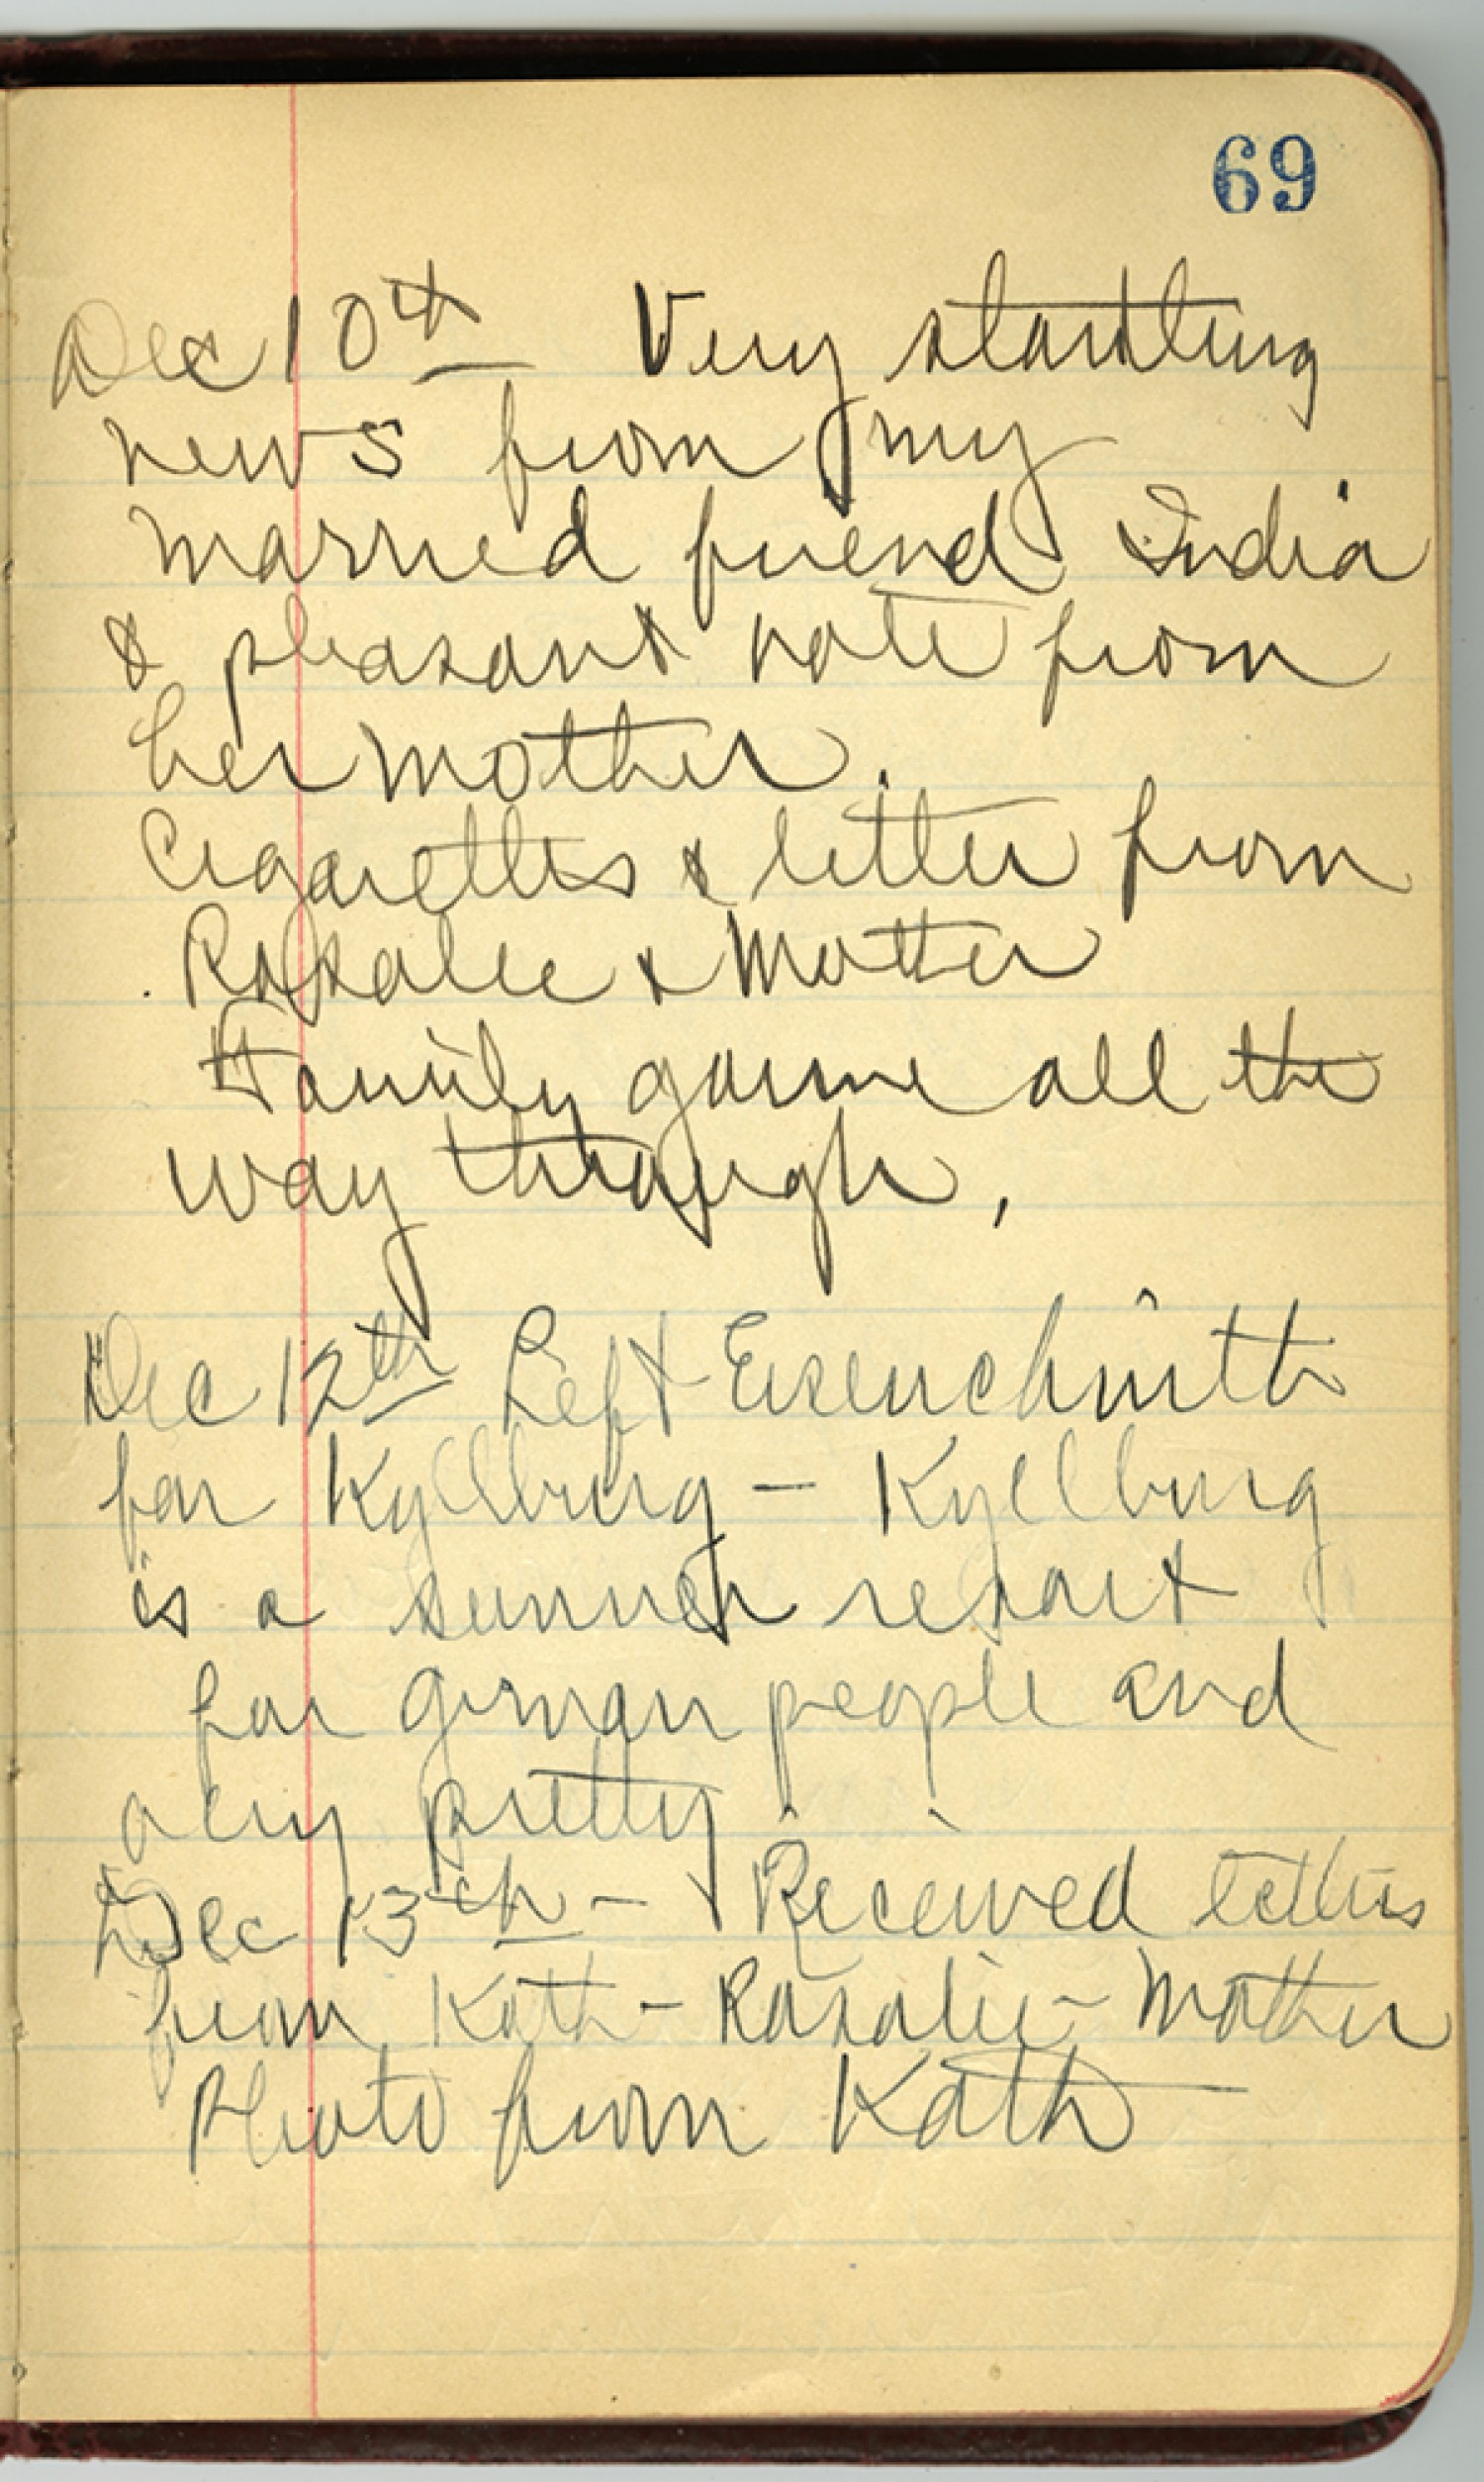 69
Dec 10th Very startling
news from my
married friend India
& pleasant note from
her mother.
Cigarettes & letter from
Rosalie & Mother
Family game all the
way through.
Dec 12th Left Eisenchmitth
for Kyllburg - Kyllburg
is a summer resort
for german people and
a very pretty
Dec 13th - Received letters
from Kath - Rosalie - Mother
Photo from Kath